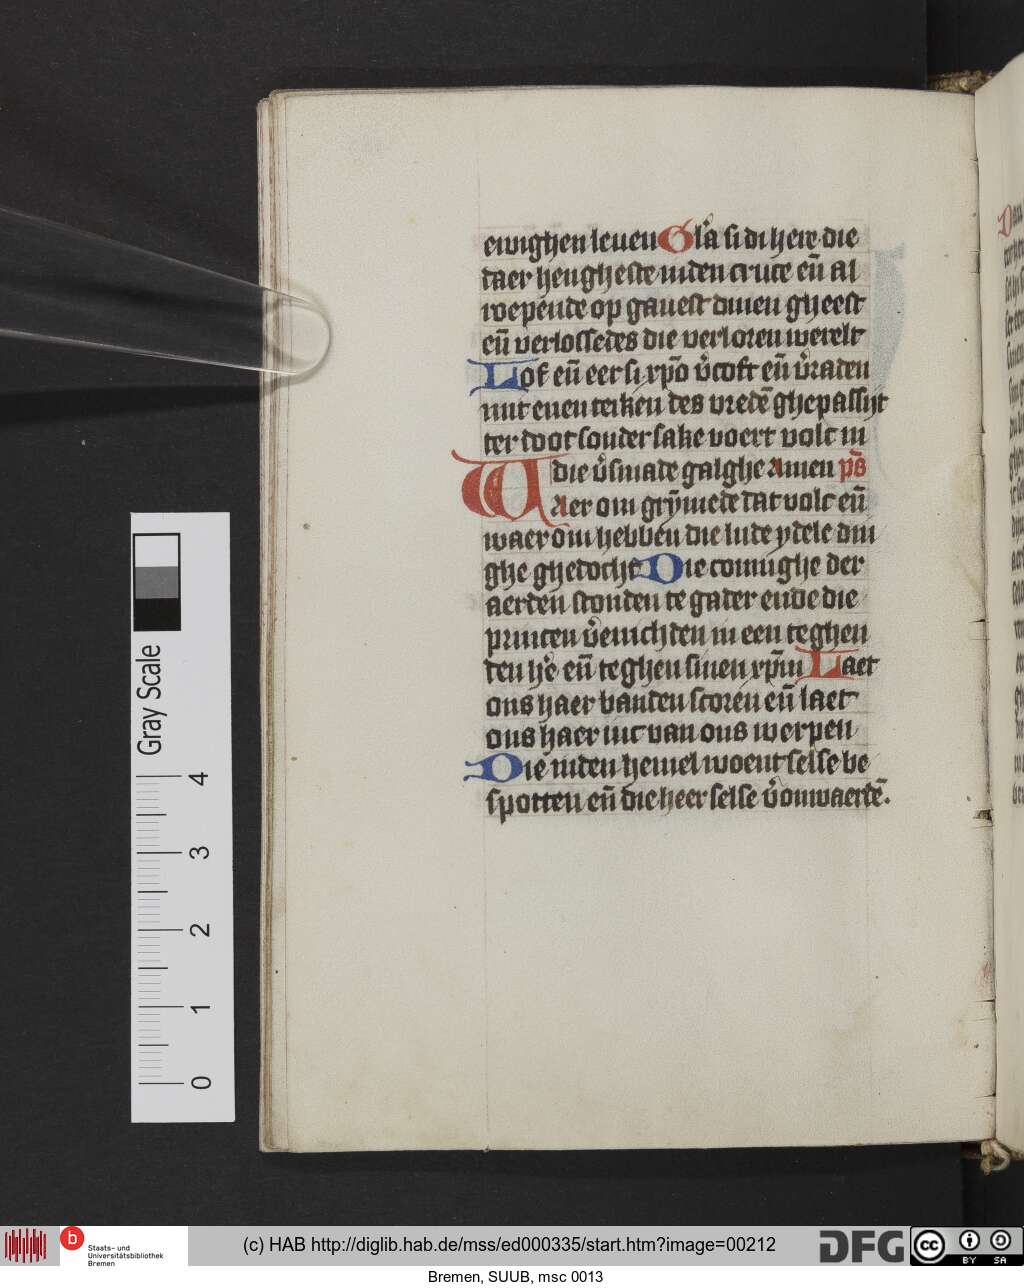 ewighen leuen Gl'a si di here die
daer hengheste inden cruce eñ al
wepende op gauest dinen gheest
eñ verlossedes die verloren werelt
Lof eñ eer si xp̃o v'coft eñ v'raden
mit enen teiken des vredẽ ghepassijt
ter doot sonder sake voert volc in
die v'smade galghe Amen ps̃
WAer om grỹmede dat volc eñ
waer om hebben die lude ydele din
ghe ghedocht Die coninghe der
aerden stonden te gader ende die
princen v'enichden in een teghen
den he' eñ teghen sinen xp̃m Laet
ons haer banden scoren eñ laet
ons haer iuc van ons werpen
Die inden hemel woent selse be
spotten eñ die heer selse v'onwaerdẽ.
Gray Scale
4
3
2
1
0
b
Staats- und
Universitätsbibliothek
Bremen
(c) HAB http://diglib.hab.de/mss/ed000335/start.htm?image=00212
DFG
cc
BY SA
Bremen, SUUB, msc 0013